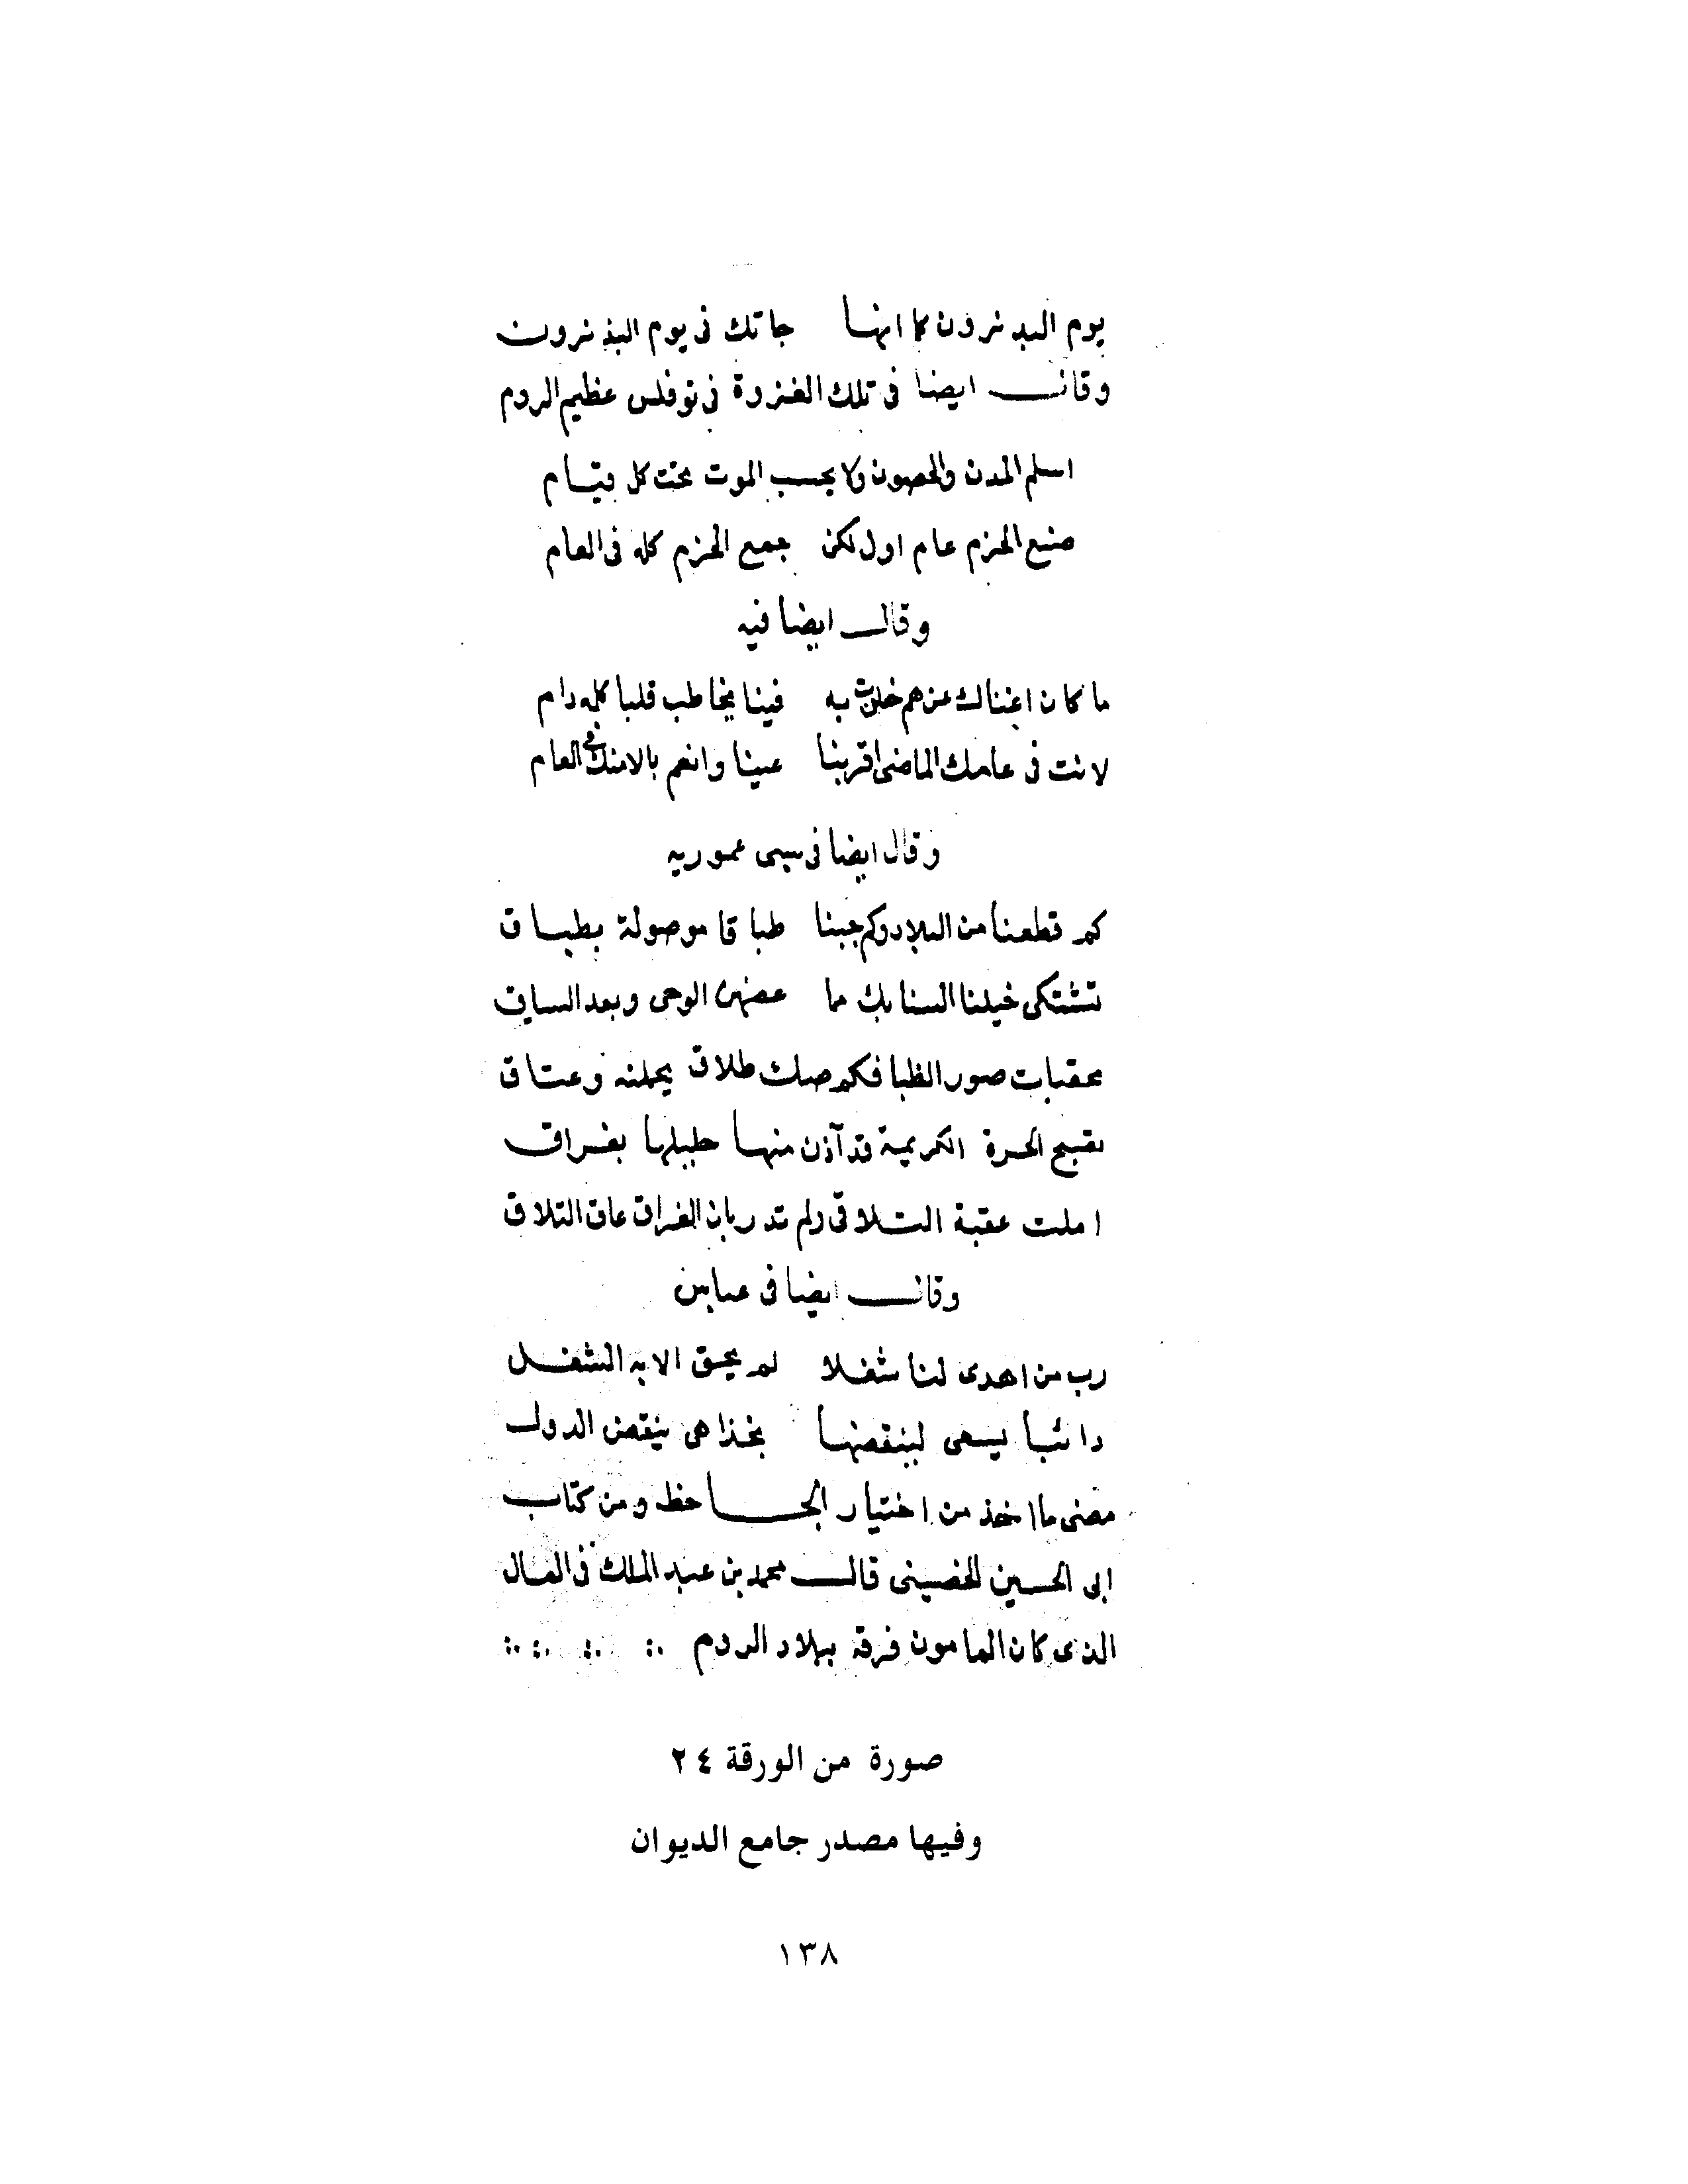 يوم البدندون كما انها جاتك فى يوم البدندون
وقال ايضا فى تلك الغزوة فى توفلس عظيم الروم
اسلم المدن والحصون ولا يحسب الموت تحت كل قتام
صنع الحزم عام اول لكن جمع الحزم كله فى العام
وقال ايضا فيه
ما كان اغناك عن هم خلوت به فينا يخاطب قلبا كله دام
لانت فى عامك الماضى اقر بنا عينا وانعم بالا منك فى العام
وقال ايضا فى سبى عموريه
كم قطعنا من البلاد وكم جبنا طباقا موصولة بطباق
تشتكى خيلنا السنابك مما عضهن الوجى وبعد المساق
محقبات صور الظبا فكم صك طلاق يحملنه وعتاق
بقبيح الحرة الكريمة قد آذن منها حليلها بفراق
املت عقبة التلاقى ولم تدر بان الفراق عاق التلاق
وقال ايضا فى عباس
رب من اهدى لنا شغلا لم يحق الا به الشغل
دائبا يسعى لينقضها بخذاهى ينقض الدول
مضى ما اخذ من اختيار الجاحظ ومن كتاب
ابى الحسين الخصيبى قال محمد بن عبد الملك فى المال
الذى كان المامون فرقه ببلاد الروم
صورة من الورقة ٢٤
وفيها مصدر جامع الديوان
١٣٨